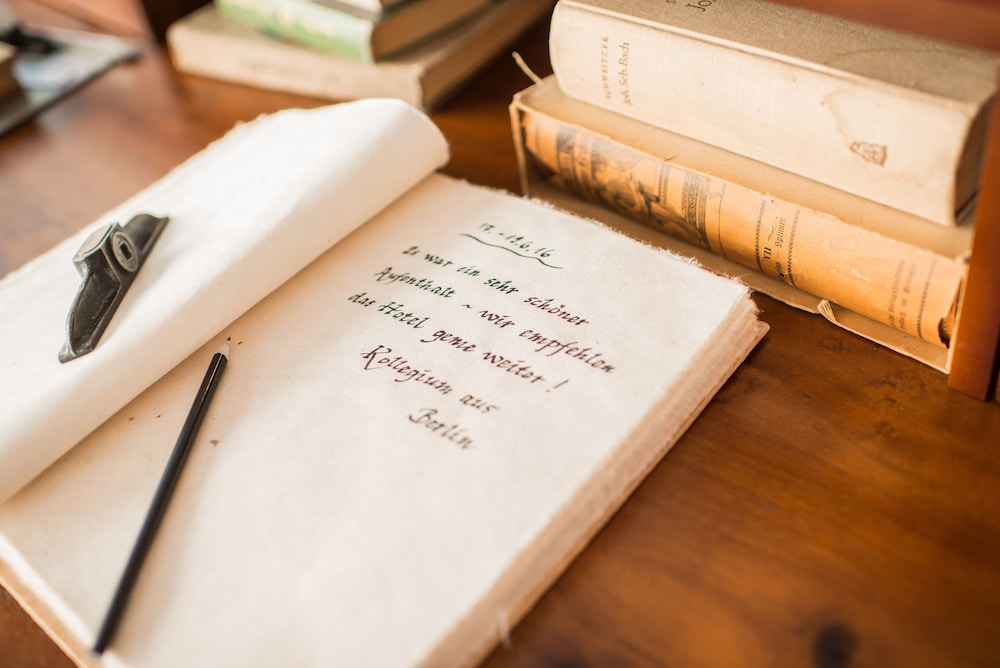 17. - 19.6.16
Es war ein sehr schöner
Aufenthalt ~ wir empfehlen
das Hotel gerne weiter!
Kollegium aus
Berlin
SCHWEITZER
Joh. Seb. Bach
Jo
VII